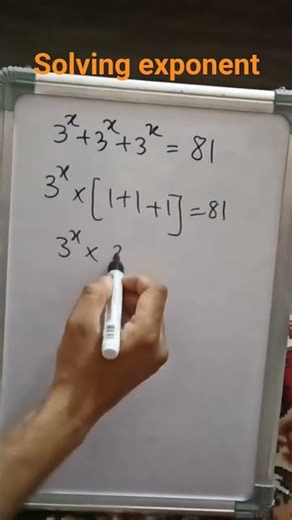 Solving exponent
3^x + 3^x + 3^x = 81
3^x × [1+1+1] = 81
3^x ×